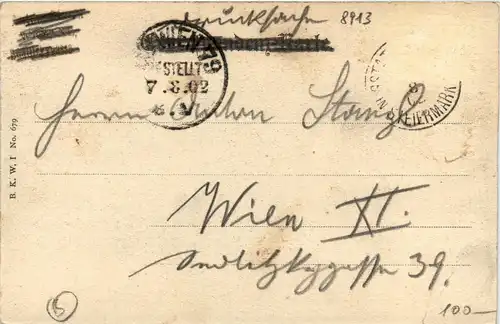 Drucksache 8913
WIEN 79
BESTELLT
7.8.02
STEIERMARK
Herrn Anton Stangl
Wien XI.
39.
B. K. W. I No. 679
6
100—